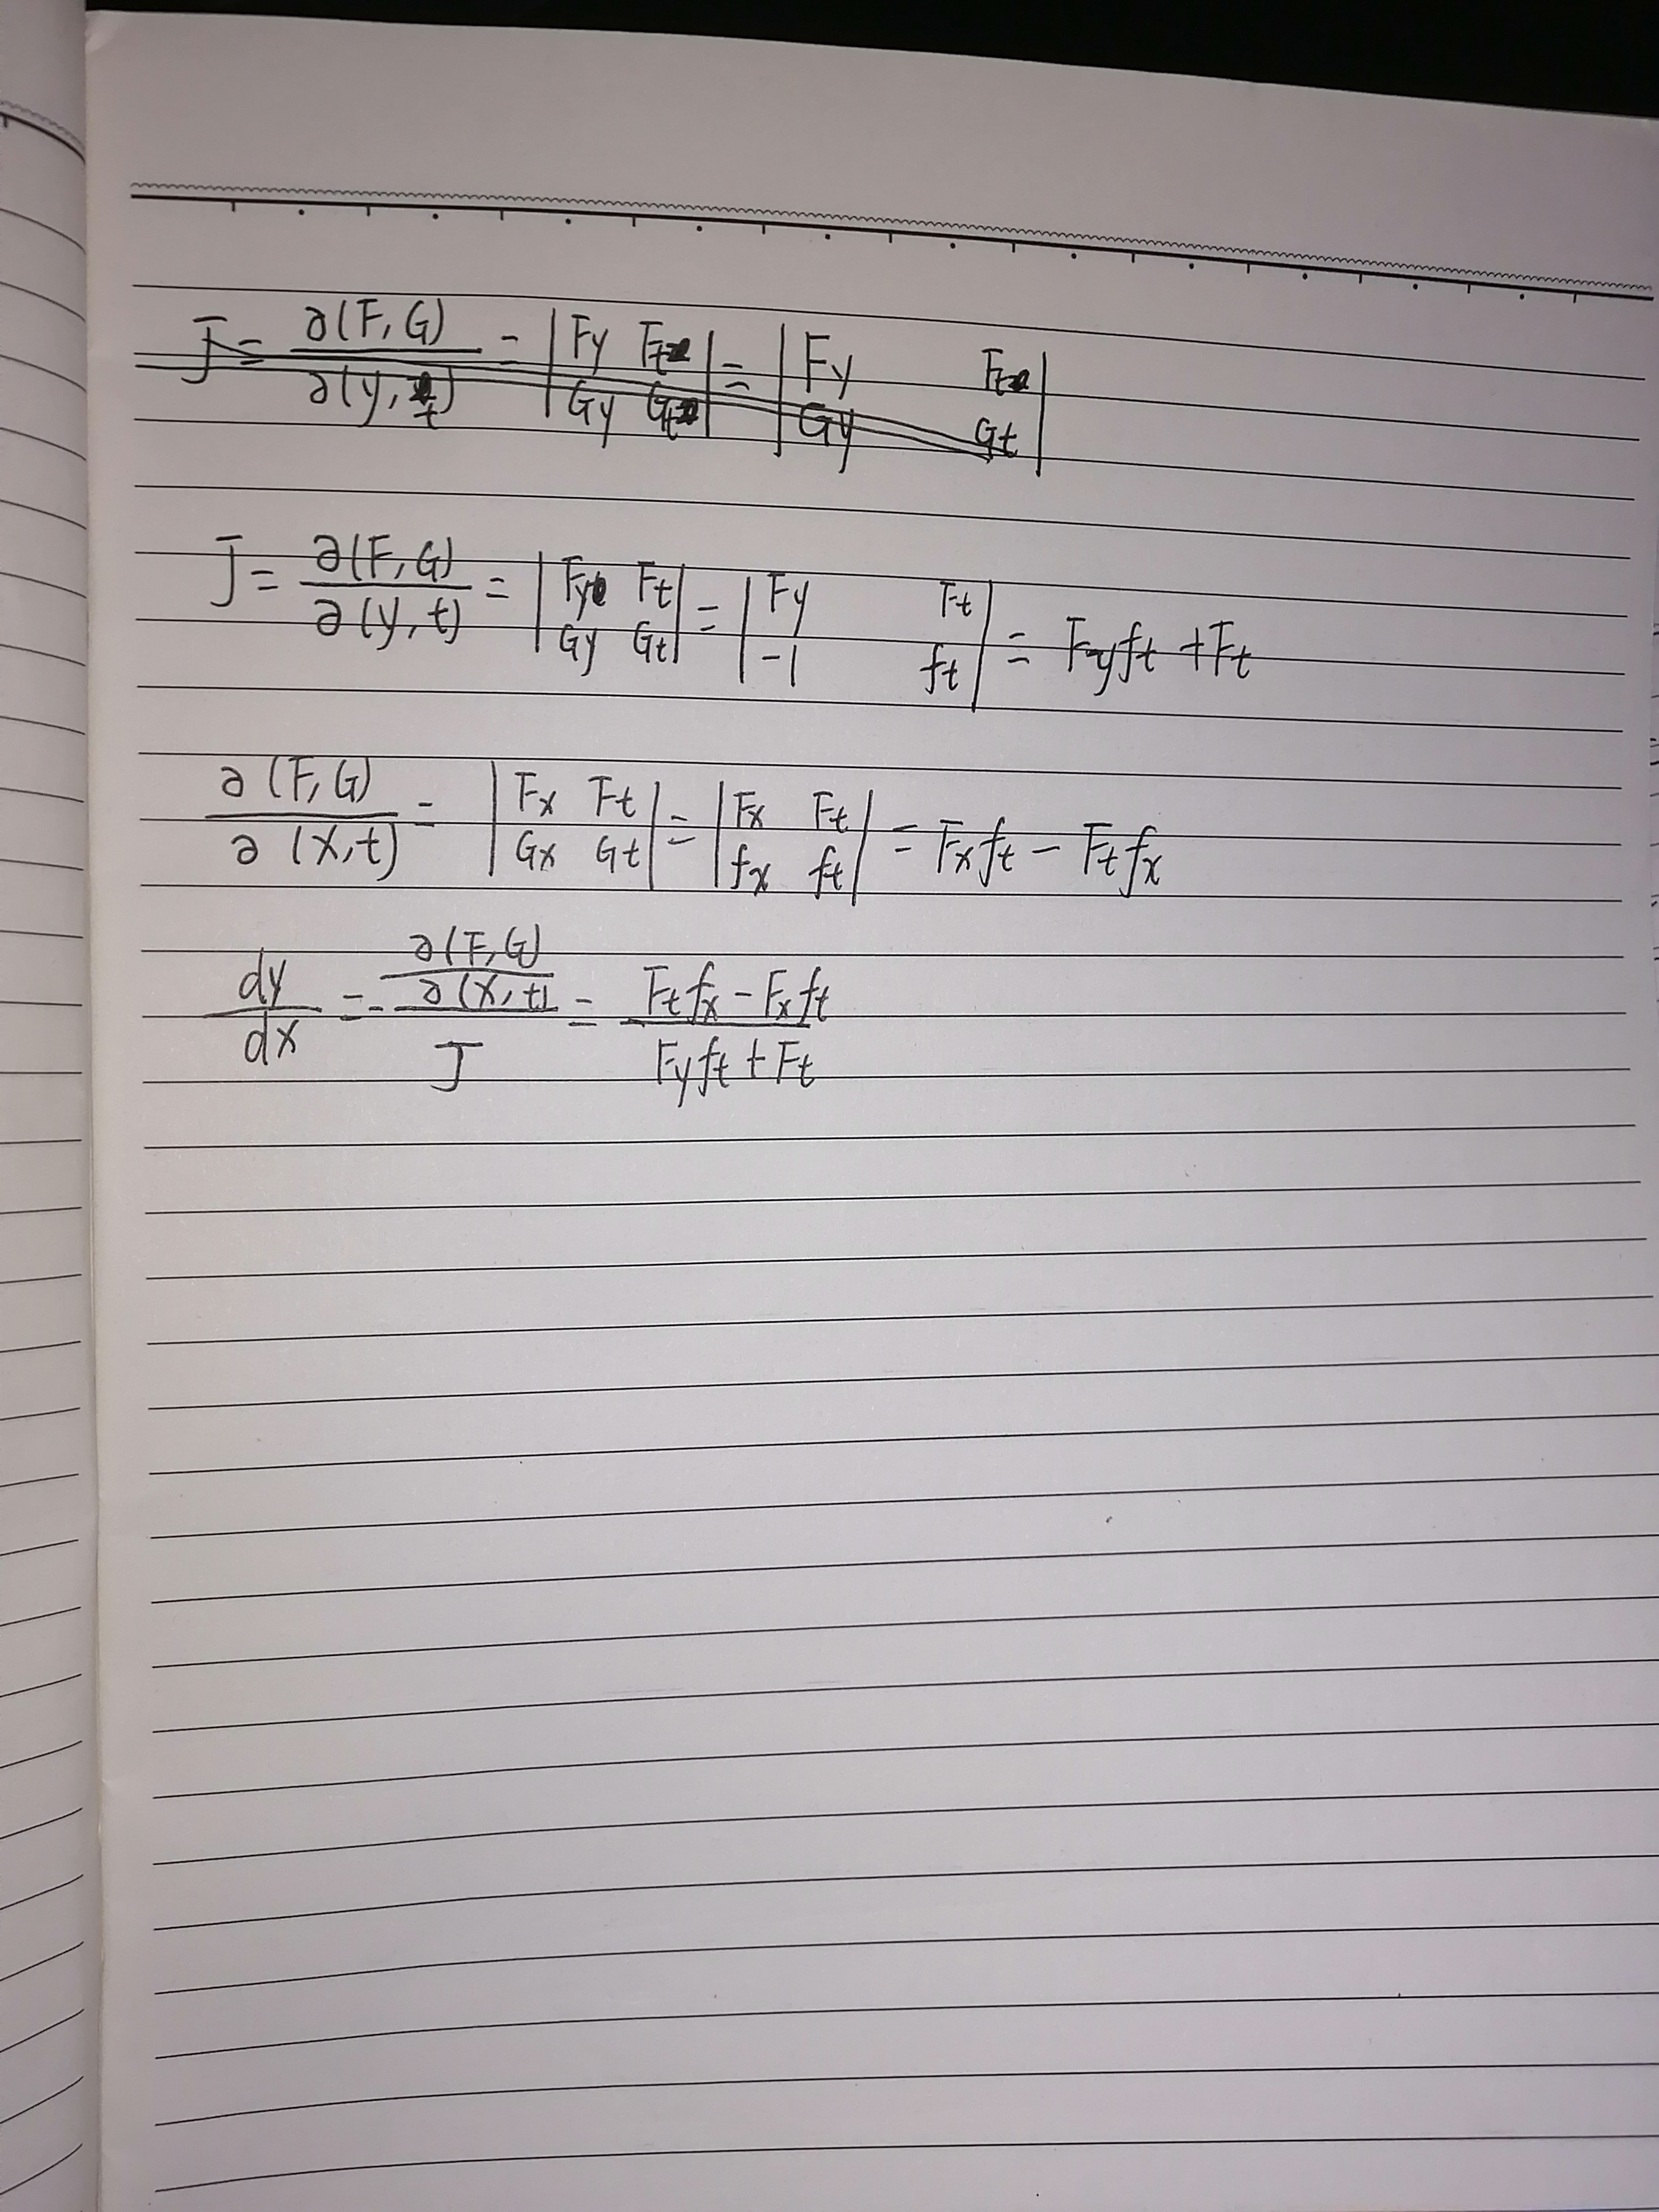 J = ∂(F,G)/∂(y,t) = |Fy Ft; Gy Gt| = |Fy Ft; Gy Gt|
J = ∂(F,G)/∂(y,t) = |Fy Ft; Gy Gt| = |Fy Ft; -1 ft| = Fyft + Ft
∂(F,G)/∂(x,t) = |Fx Ft; Gx Gt| = |Fx Ft; fx ft| = Fxft - Ftfx
dy/dx = - (∂(F,G)/∂(x,t))/J = (Ftfx - Fxft)/(Fyft + Ft)